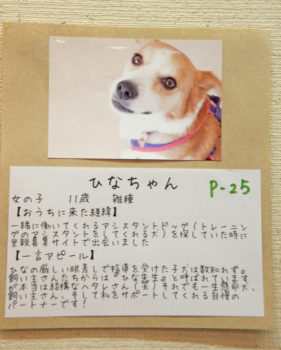 ひなちゃん
P-25
女の子 11歳 雑種
【おうちに来た経緯】
一緒に働いてくれるアシスタントドッグ(トレーニン
グのアシスタントをしてくれる犬)を探していた時に
里親募集サイトで出会いました
【一言アピール】
ひなの厳しい眼差しで指導を受けた子犬は数知れず。
飼い主さんたちからは『ひな先生』と呼ばれています
が本当は結構なヘタレさん(笑)それでも一生懸命犬、
飼い主さん、そして私をサポートしてくれる自慢の
パートナーです!